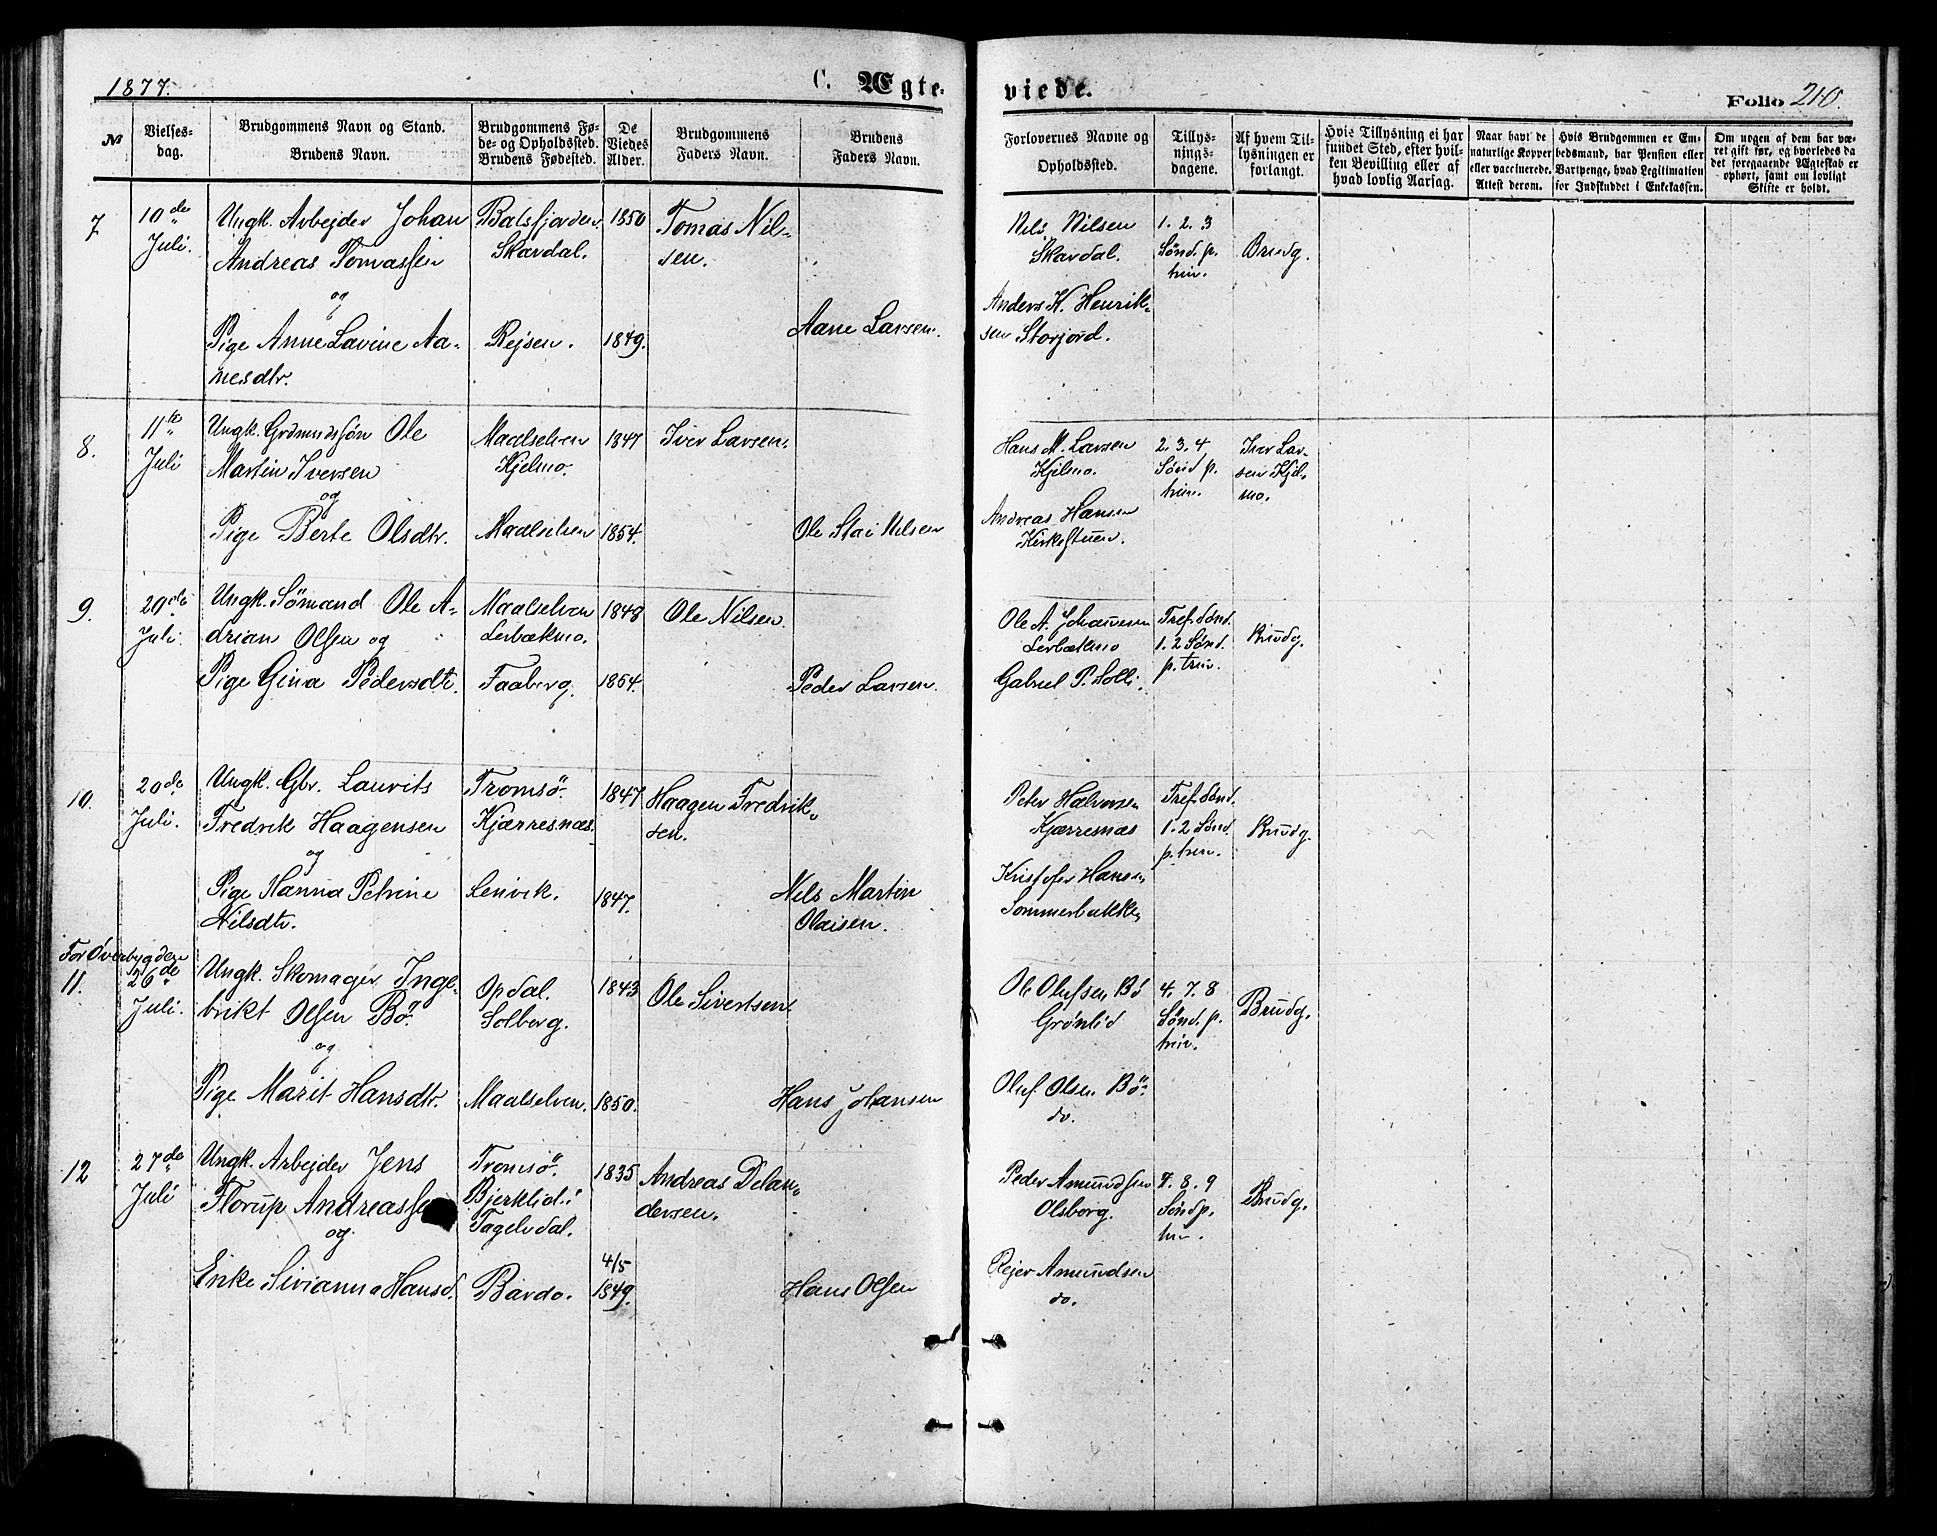 1877.
C. Ægte-
viede.
Folio 210.
No
Vielses-
dag.
Brudgommens Navn og Stand.
Brudens Navn.
Brudgommens Fø-
de- og Opholdssted.
Brudens Fødested.
De
Viedes
Alder.
Brudgommens
Faders Navn.
Brudens
Faders Navn.
Forlovernes Navne og
Opholdssted.
Tillys-
nings-
dagene.
Af hvem Til-
lysningen er
forlangt.
Hvis Tillysning ei har
fundet Sted, efter hvil-
ken Bevilling eller af
hvad lovlig Aarsag.
Naar havt de
naturlige Kopper
eller vaccinerede.
Attest derom.
Hvis Brudgommen er Em-
bedsmand, har Pension eller
Vartpenge, hvad Legitimation
for Indskuddet i Enkekassen.
Om nogen af dem har væ-
ret gift før, og hvorledes da
det foregaaende Ægteskab er
ophørt, samt om lovligt
Skifte er holdt.
7
10de
Juli.
Ungk. Arbejder Johan
Andreas Tomassen
og
Pige Anne Lavine Aa-
nesdtr.
Balsfjorden.
Skardal.
Rejsen.
1850
1849.
Tomas Nil-
sen.
Aane Larsen.
Nils Nilsen
Skardal.
Anders K. Henrik-
sen Storjord.
1. 2. 3
Sönd. p.
trin.
Brudg.
8.
11te
Juli
Ungk. Grdmandssön Ole
Martin Iversen
og
Pige Berte Olsdtr.
Maalselven
Kjelmo.
Maalselven
1847
1854.
Iver Larsen.
Ole Stai Nilsen
Hans M. Larsen
Kjelmo.
Andreas Hansen
Kirkestuen.
2. 3. 4
Sönd p.
trin.
Iver Lar-
sen Kjel-
mo.
9.
Juli.
Ungk. Sömand Ole A-
drian Olsen og
Pige Gina Pedersdtr.
Maalselven
Lerbækmo.
Faaberg.
1848
1854.
Ole Nilsen.
Peder Larsen.
Ole A. Johansen
Lerbækmo
Gabriel P. Solli.
Tref. Sönd.
1. 2 Sönd.
p. trin.
Brudg.
10.
20de
Juli.
Ungk. Gbr. Laurits
Fredrik Haagensen
og
Pige Hanna Petrine
Nilsdtr.
Tromsö.
Kjærresnæs.
Lenvik.
1847
1847.
Haagen Fredrik-
sen.
Nils Martin
Olaisen.
Peter Halvorsen
Kjærresnæs
Kristofer Hansen
Sommerbakken
Tref. Sönd.
1. 2 Sönd.
p. trin.
Brudg.
For Överbygden
11.
26de
Juli.
Ungk. Skomager Inge-
brikt Olsen Bö.
og
Pige Marit Hansdtr.
Opdal.
Solberg.
Maalselven.
1843
1850.
Ole Sivertsen
Hans Johansen
Ole Olufsen Bö
Grönlid
Oluf Olsen Bö
do.
4. 7. 8
Sönd. p.
trin.
Brudg.
12
27de
Juli
Ungk. Arbejder Jens
Florup Andreassen
og
Enke Sivianna Hansd.
Tromsö.
Bjerklid i
Tagelvdal.
Bardo.
1835
4/5
1849.
Andreas Delan-
dersen.
Hans Olsen
Peder Amundsen
Olsborg.
Rejer Amundsen
do.
7. 8. 9
Sönd p.
trin.
Brudg.